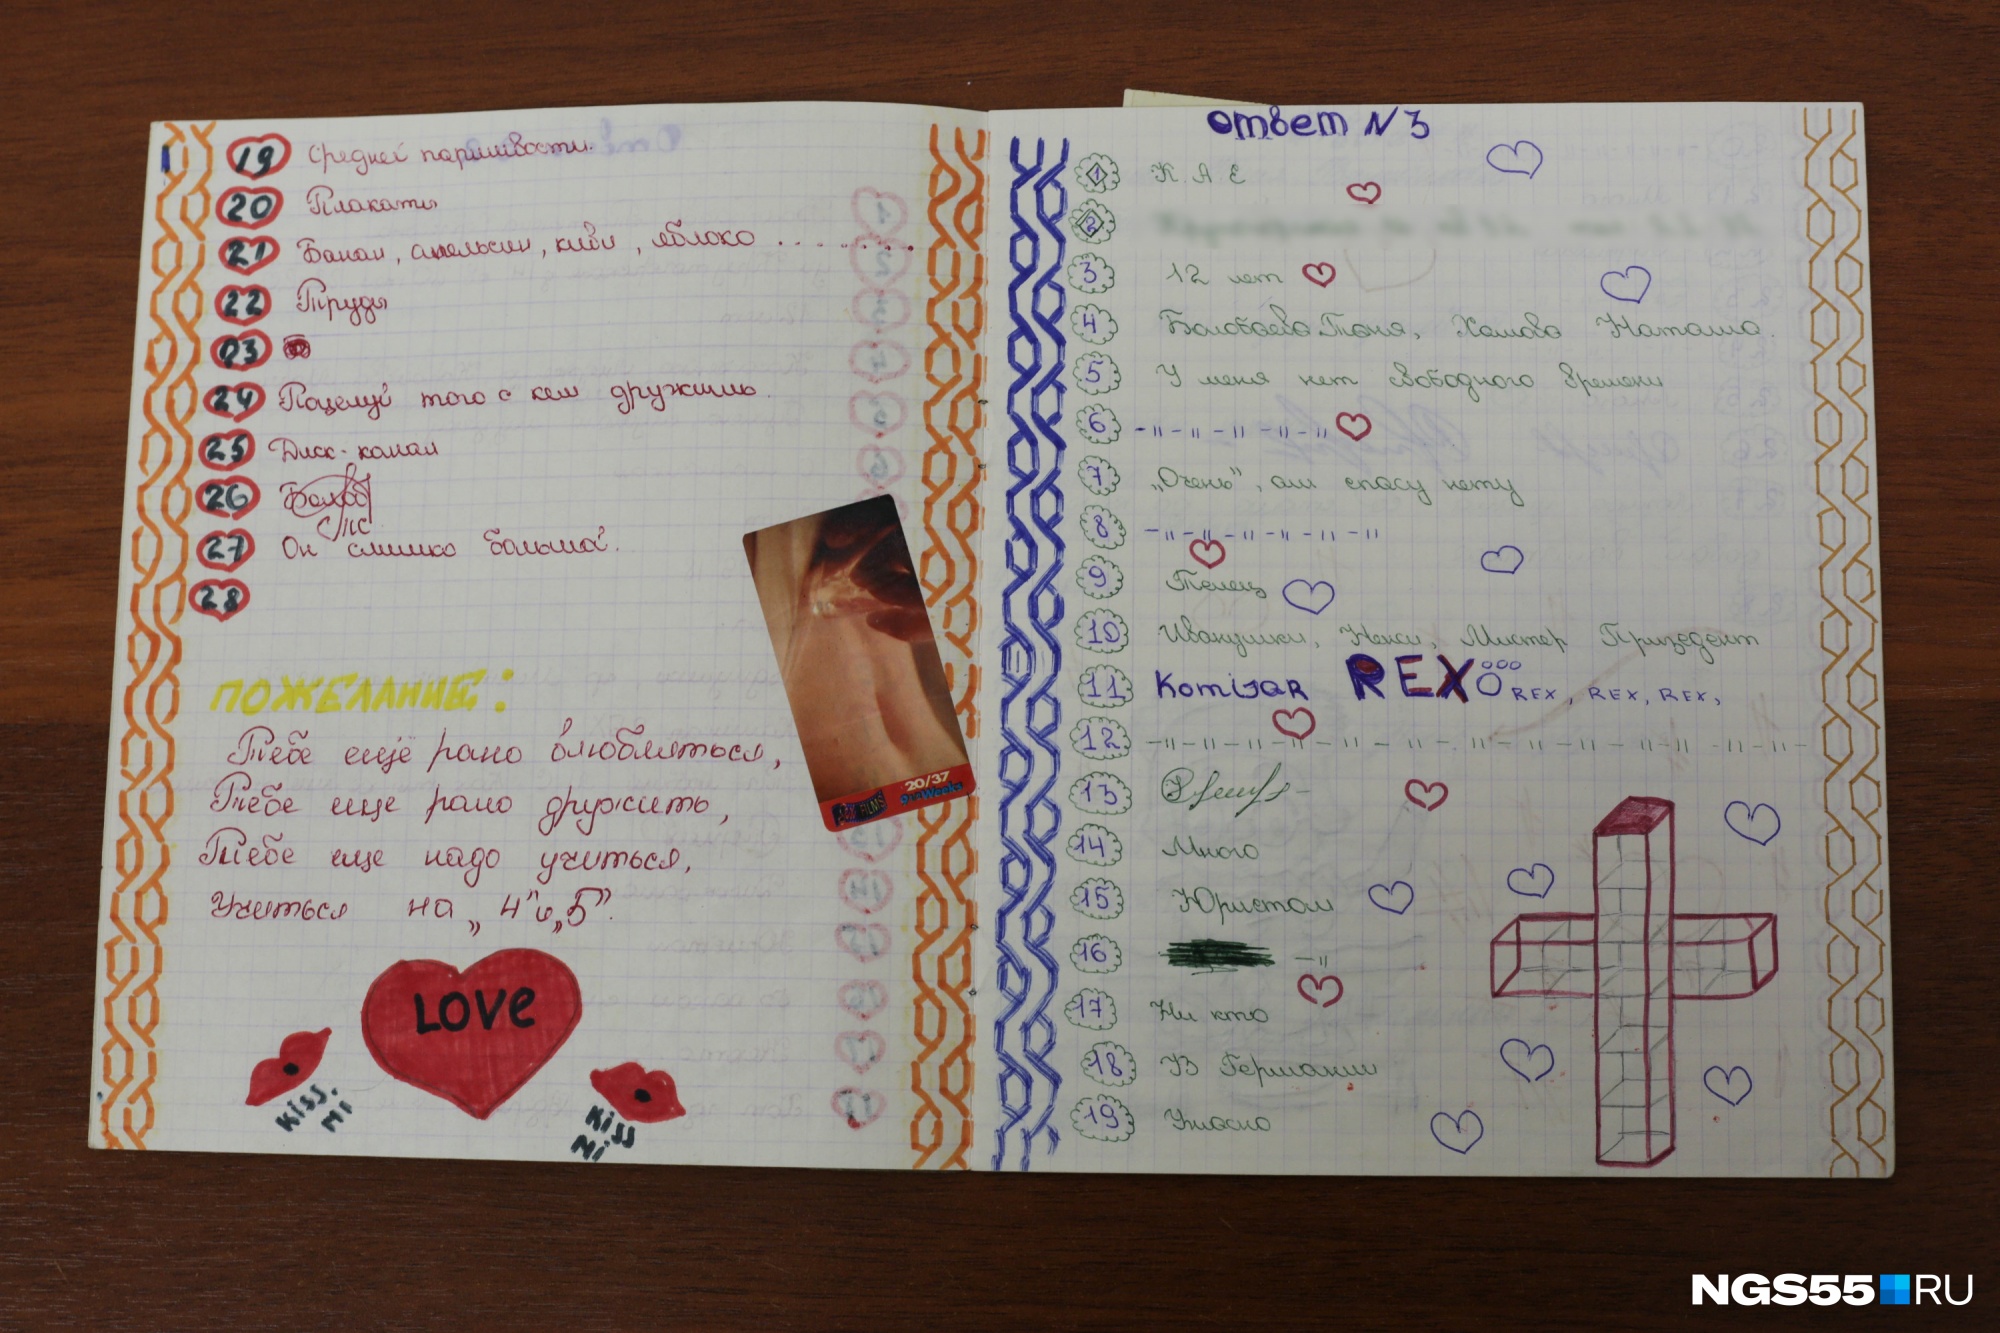 19 Средней паршивости.
20 Плакаты
21 Банан, апельсин, киви, яблоко ........
22 Груды
23
24 Поцелуй того с кем дружишь.
25 Диск-канал
26
27 Он слишко большой.
28
ПОЖЕЛАНИЕ:
Тебе ещё рано влюбляться,
Тебе еще рано дружить,
Тебе еще надо учиться,
Учиться на „4" и „5".
LOVE
Kiss. Mi
Kiss Mi
20/37
9 1/2 Weeks
ответ N 3
1 К. А. Е
2
3 12 лет
4 Балобаева Таня, Наташа.
5 У меня нет свободного времени
6 -"-"-"-"-"
7 „Очень", аш спасу нету
8 -"-"-"-"-"-"
9 Телец
10 Иванушки, Ненси, Мистер Призедент
11 Komisar REX REX, REX, REX,
12 -"-"-"-"-"-"-"-"-"-"-"-"-
13
14 Много
15 Юристом
16 -"
17 Ни кто
18 В Германии
19 Ужасно
NGS55 RU